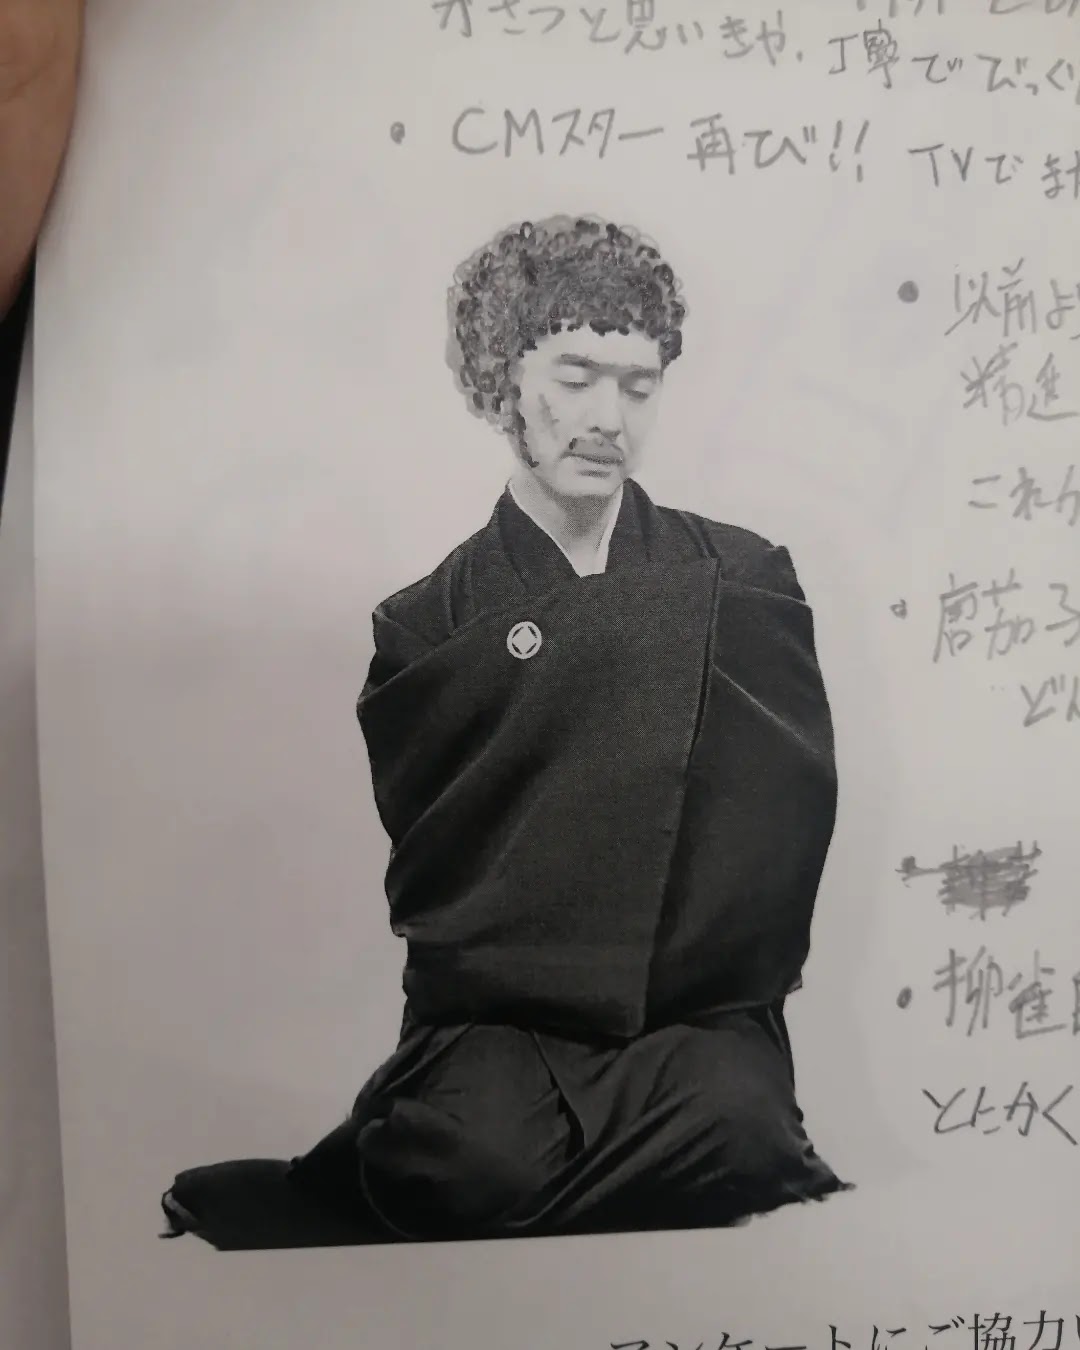 がさつと思いきや、丁寧でびっくり
・CMスター再び!! TVでまた
・以前よ
精進
これ
・唐茄子
どん
・柳雀
とにかく
アンケートにご協力